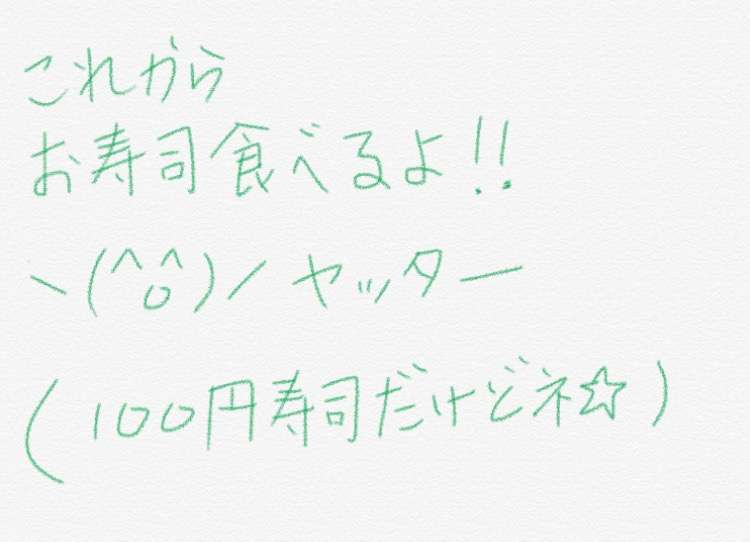 これから
お寿司食べるよ!!
ヽ(^o^)ノ ヤッター
(100円寿司だけどネ☆)